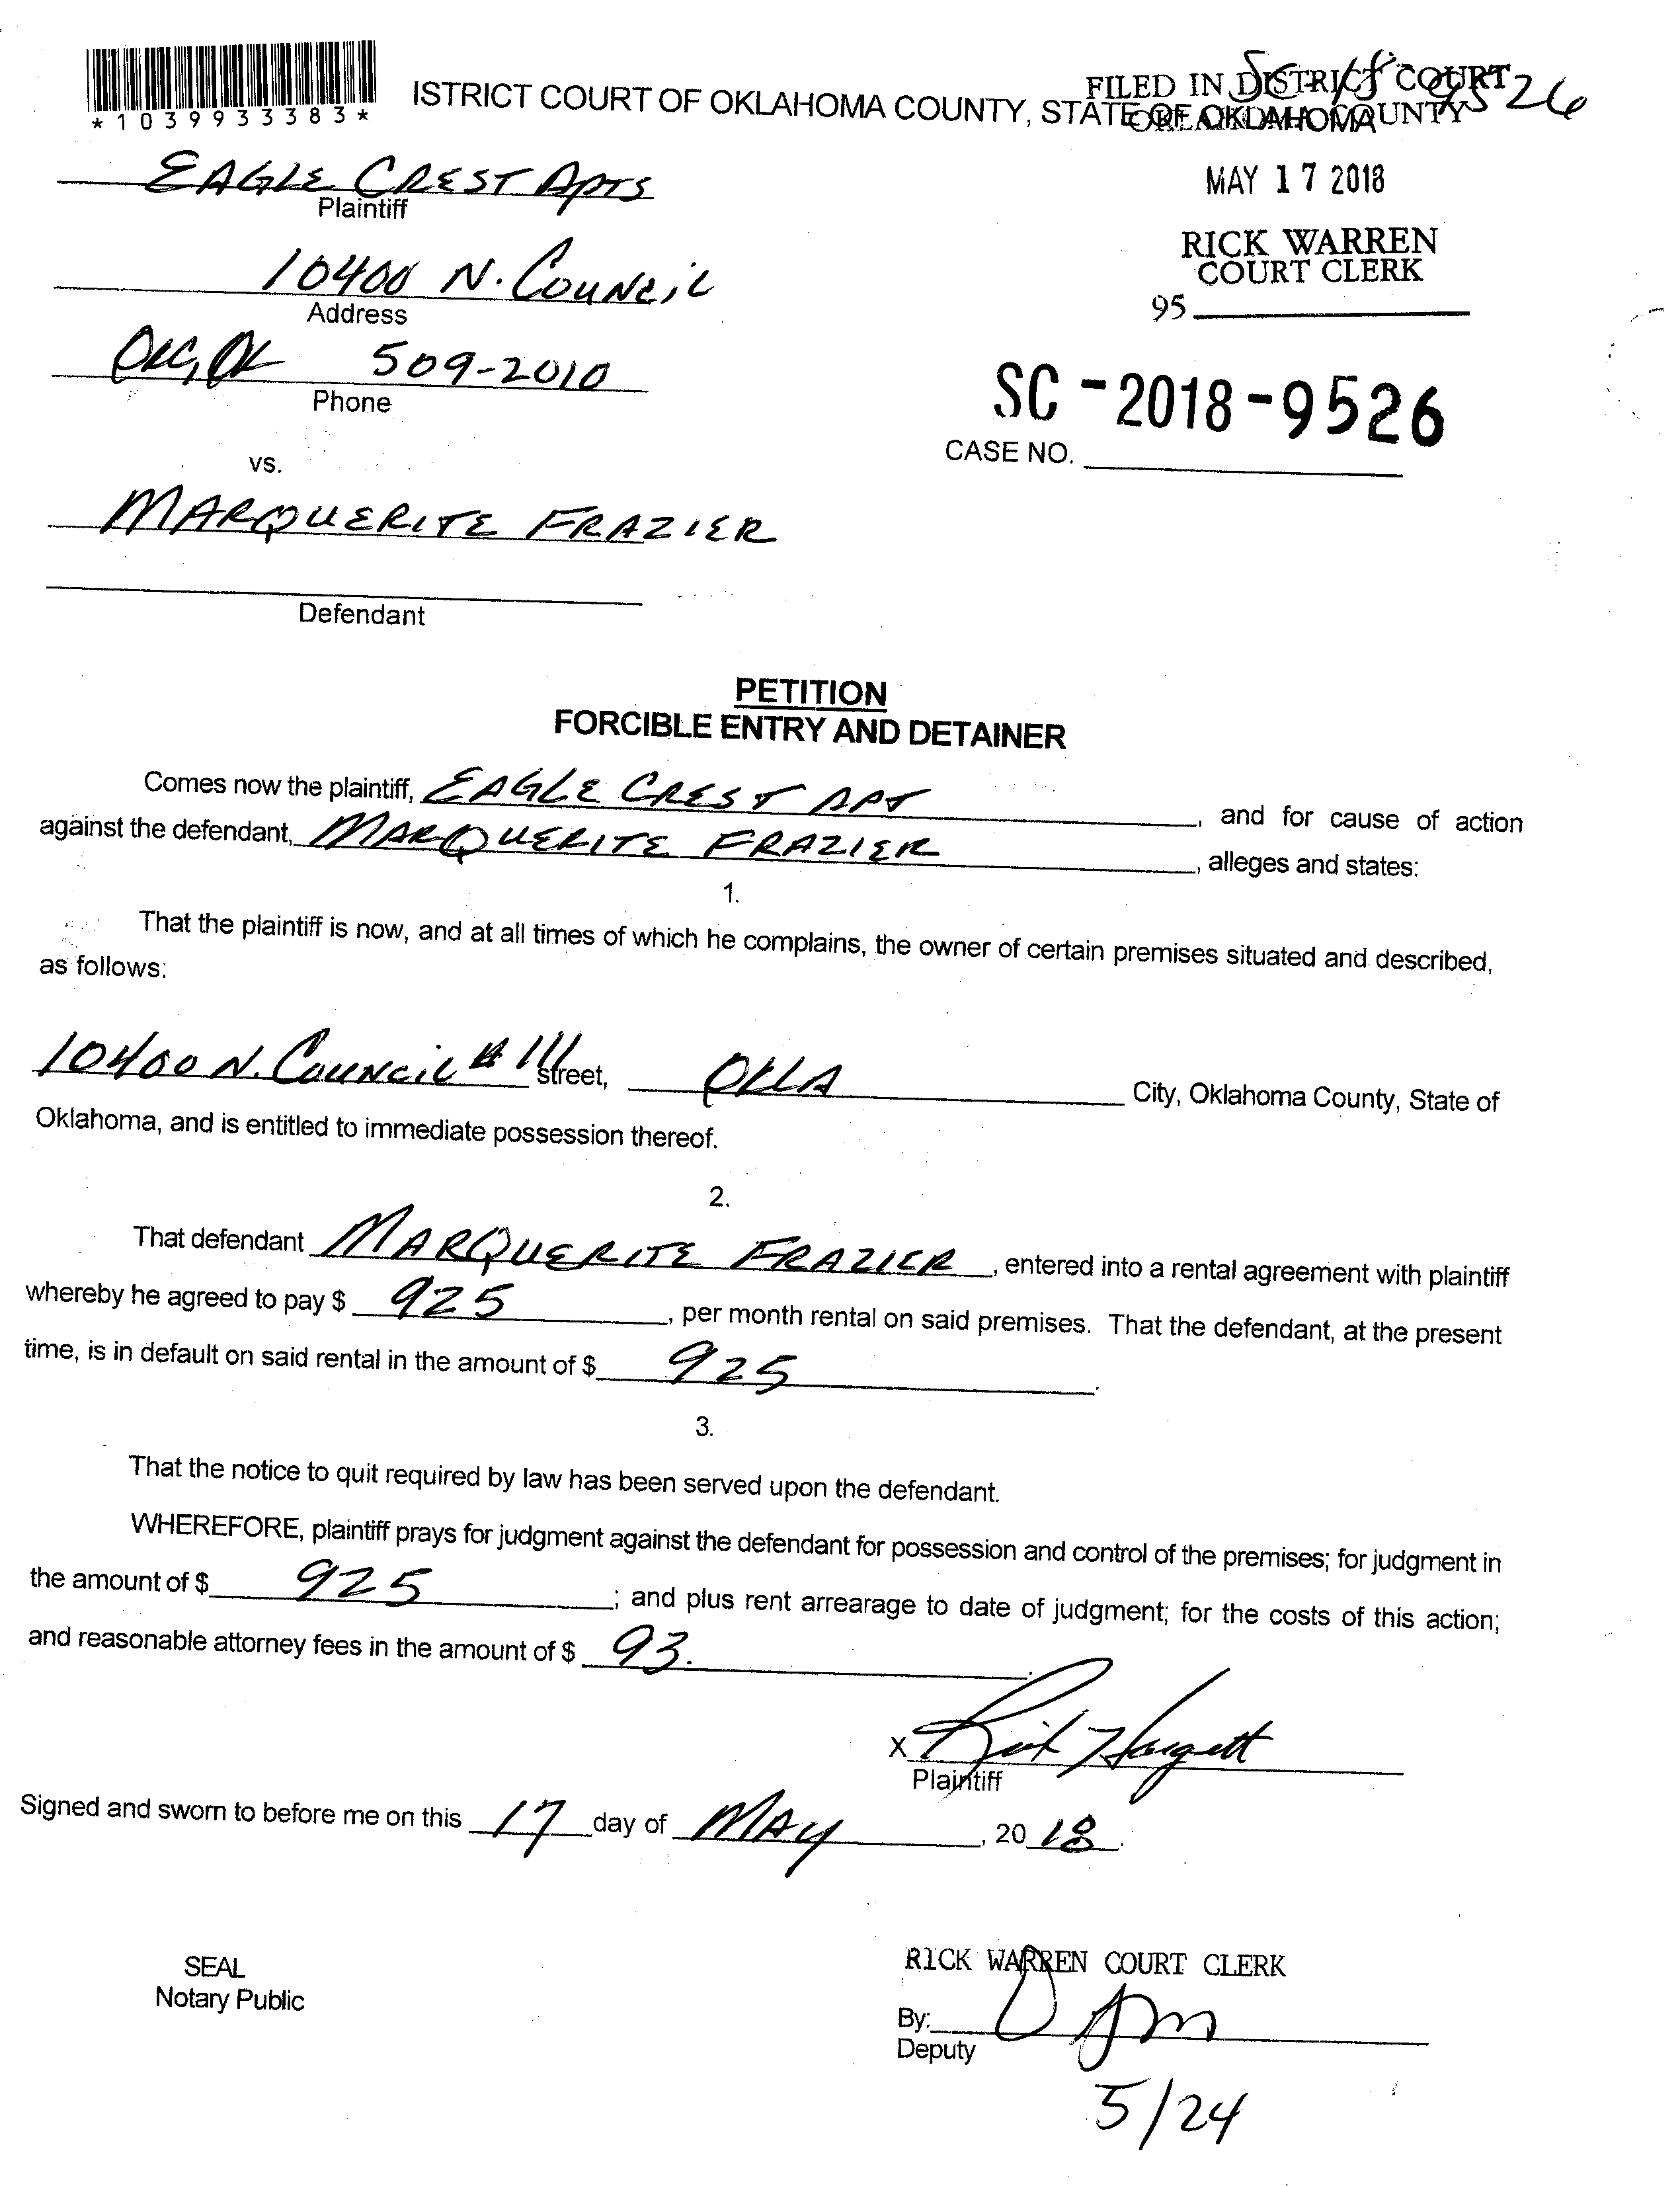 *1039933383*
ISTRICT COURT OF OKLAHOMA COUNTY, STATE OF OKLAHOMA
SC-18-9526
FILED IN DISTRICT COURT
OKLAHOMA COUNTY
MAY 17 2018
RICK WARREN
COURT CLERK
95
EAGLE CREST APTS
Plaintiff
10400 N. COUNCIL
Address
OKC, OK 509-2010
Phone
SC-2018-9526
CASE NO.
vs.
MARQUERITE FRAZIER
Defendant
PETITION
FORCIBLE ENTRY AND DETAINER
Comes now the plaintiff, EAGLE CREST APT, and for cause of action
against the defendant, MARQUERITE FRAZIER, alleges and states:
1.
That the plaintiff is now, and at all times of which he complains, the owner of certain premises situated and described,
as follows:
10400 N. COUNCIL # 111 street, OKLA City, Oklahoma County, State of
Oklahoma, and is entitled to immediate possession thereof.
2.
That defendant MARQUERITE FRAZIER, entered into a rental agreement with plaintiff
whereby he agreed to pay $ 925, per month rental on said premises. That the defendant, at the present
time, is in default on said rental in the amount of $ 925.
3.
That the notice to quit required by law has been served upon the defendant.
WHEREFORE, plaintiff prays for judgment against the defendant for possession and control of the premises; for judgment in
the amount of $ 925; and plus rent arrearage to date of judgment; for the costs of this action;
and reasonable attorney fees in the amount of $ 93.
X Rick Hargett
Plaintiff
Signed and sworn to before me on this 17 day of MAY, 2018.
SEAL
Notary Public
RICK WARREN COURT CLERK
By:
Deputy
5/24